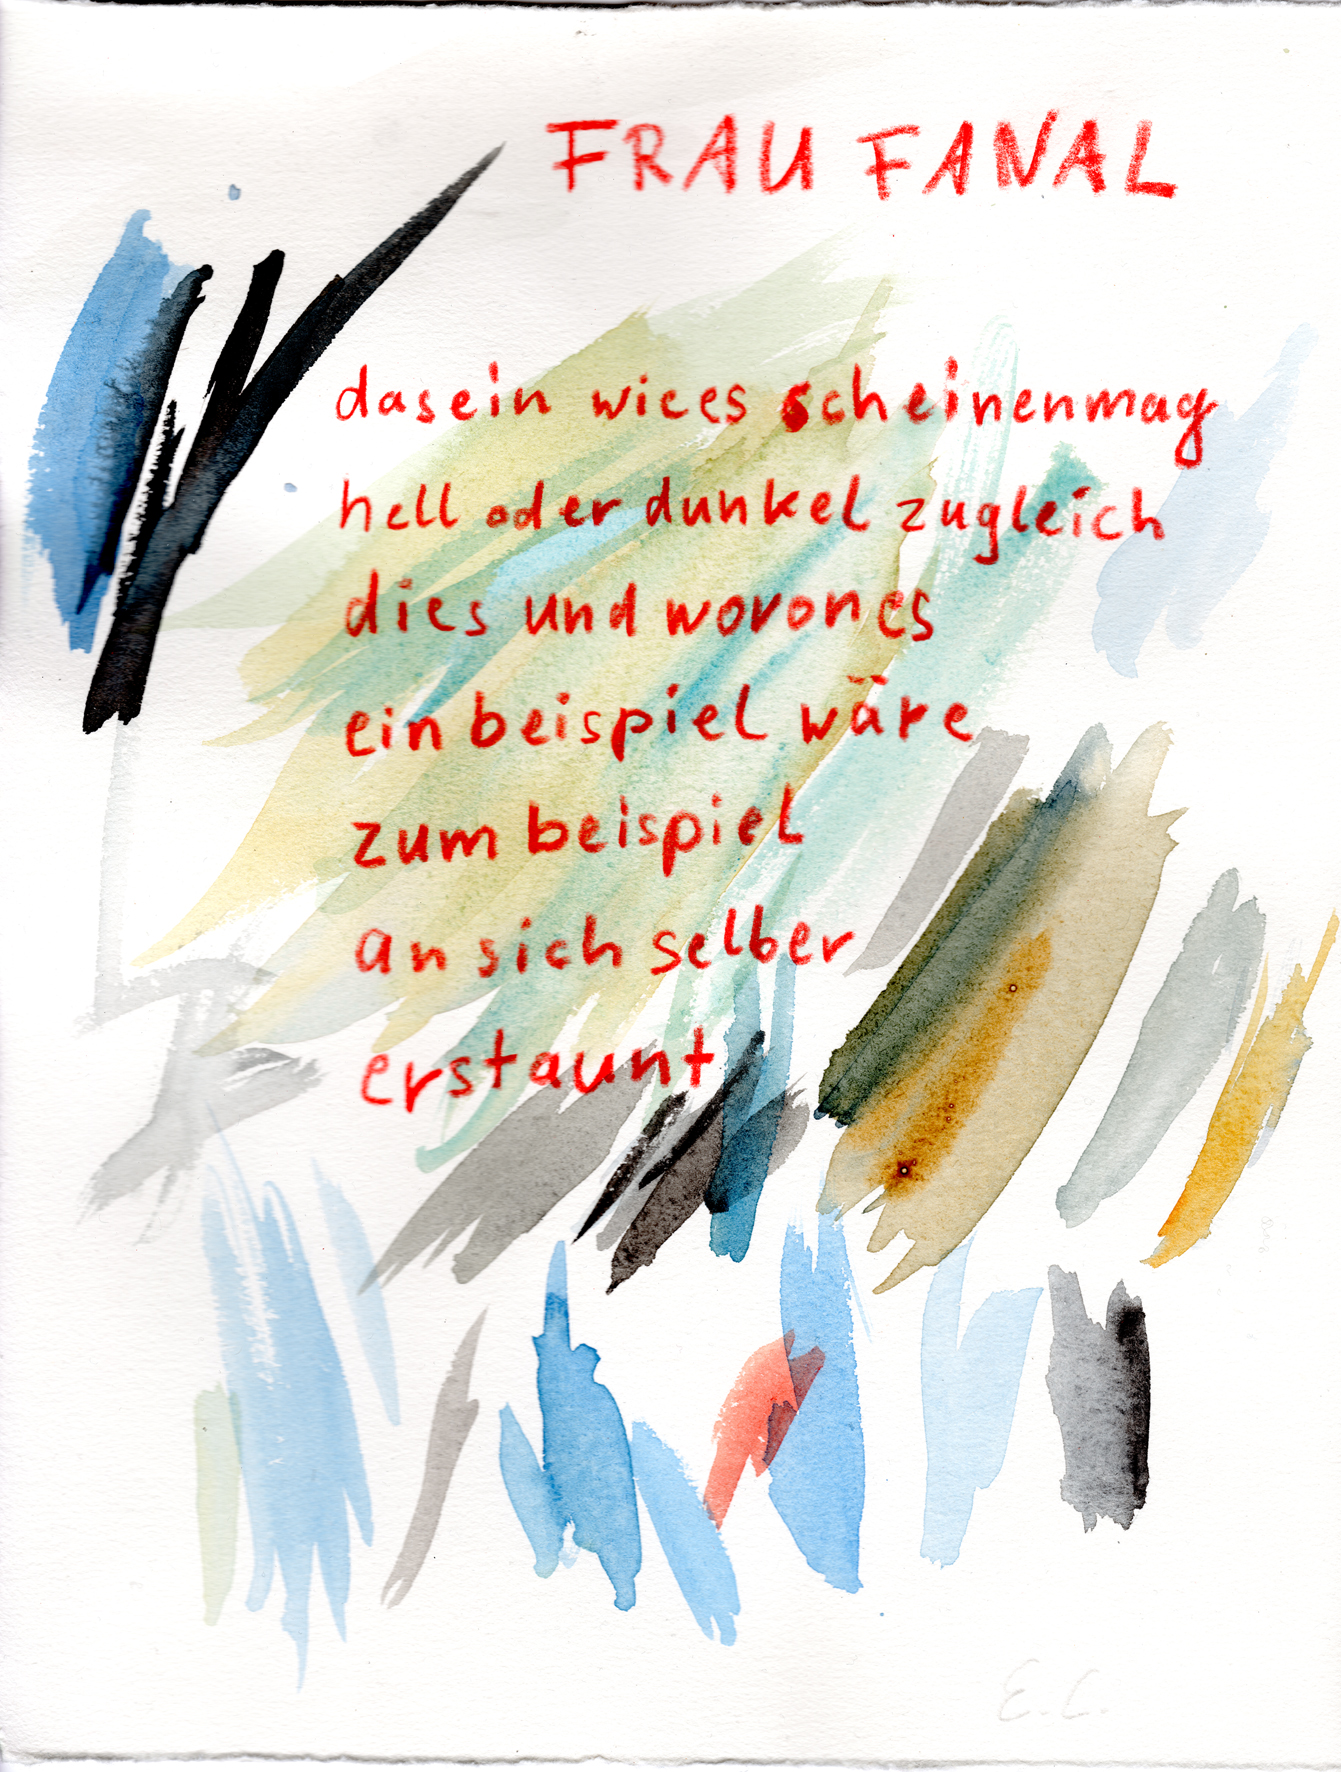 FRAU FANAL
dasein wiees scheinenmag
hell oder dunkel zugleich
dies und wovones
ein beispiel wäre
zum beispiel
an sich selber
erstaunt
E. C.